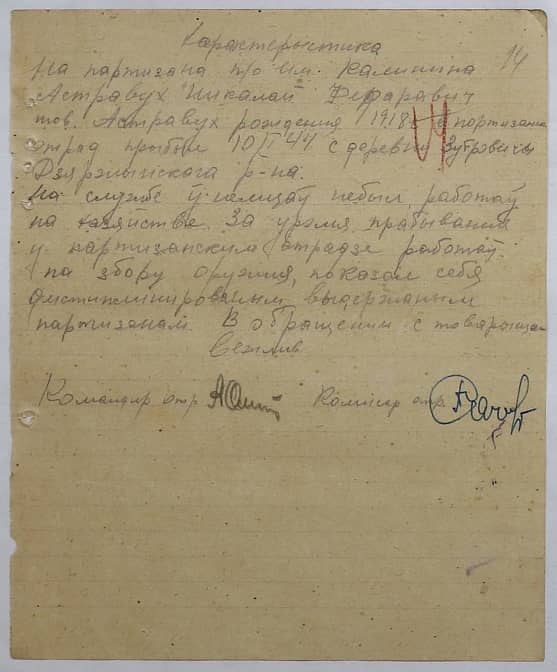 Характерыстика 14
На партизана п/о им. Калинина
Астравух Никалай Фёдаравич
тов. Астравух рождения 1918г. в портизанск
отряд прыбыл 10/I 44 с деревни
Дзяржынскога р-на.
На службе ў немцаў небыл, работаў
на хазяистве. За урэмя прабывания
у партизанским отрадзе работаў
па збору оружия, показал себя
дистиплинированым выдержаным
партизанам. В обращении с товарыщам
Вежлив.
Командир отр. Комисар отр.